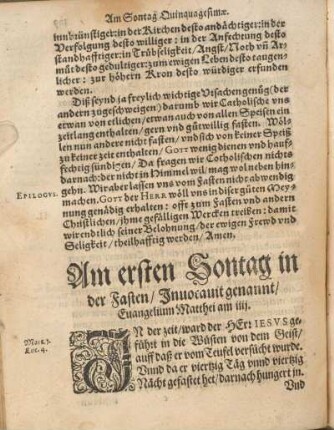 Am Sontag Quinquagesimæ.
innbrünstiger: in der Kirchen desto andächtiger: in der
Verfolgung desto williger: in der Anfechtung desto
standhafftiger: in Trübseligkeit / Angst / Noth vñ Ar-
müt desto gedultiger: zum ewigen Leben desto taugen-
licher: zur höhern Kron desto würdiger erfunden
werden.
Diß seynd ja freylich wichtige Vrsachen genüg (der
andern zugeschweigen) darumb wir Catholische vns
etwan von etlichen / etwan auch von allen Speisen ein
zeitlang enthalten / gern vnd gütwillig fasten. Wöl-
len nun andere nicht fasten / vnd sich von keiner Speiß
zu keiner zeit enthalten / GOTT wenig dienen vnd hauf-
fechtig sündigen / Da fragen wir Catholischen nichts
darnach: der nicht in Himmel wil / mag wol neben hin-
gehn. Wir aber lassen vns vom Fasten nicht abwendig
EPILOGVS.
machen. GOTT der HERR wöll vns in diser güten Mey-
nung genädig erhalten: offt zum Fasten vnd andern
Christlichen / jhme gefälligen Wercken treiben: damit
wir endtlich seiner Belohnung / der ewigen Frewd vnd
Seligkeit / theilhafftig werden / Amen.
Am ersten Sontag in
der Fasten / Innocauit genannt /
Euangelium Matthei am iiij.
Marc. 1.
Luc. 4.
IN der zeit / ward der HErr IESVS ge-
führt in die Wüsten von dem Geist /
auff daß er vom Teufel versücht wurde.
Vnnd da er viertzig Täg vnnd viertzig
Nächt gefastet het / darnach hungert jn.
Vnd